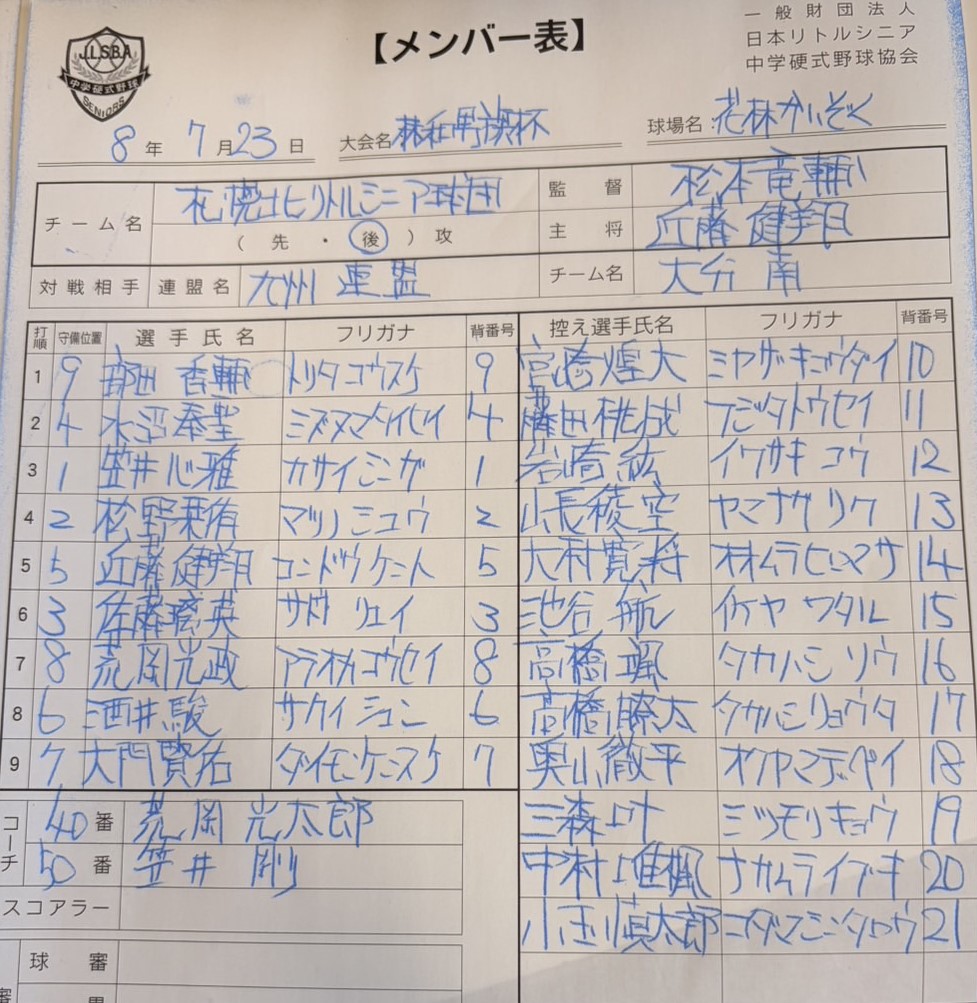 J.L.S.B.A
中学硬式野球
SENIORS
【メンバー表】
一般財団法人
日本リトルシニア
中学硬式野球協会
8年 7月23日 大会名 林和男旗杯 球場名:
チーム名 札幌北リトルシニア球団 監督 松本竜輔
(先・後)攻 主将 近藤健翔
対戦相手 連盟名 九州連盟 チーム名 大分南
打順 守備位置 選手氏名 フリガナ 背番号 控え選手氏名 フリガナ 背番号
1 9 トリタコウスケ 9 宮崎煌大 ミヤザキコウダイ 10
2 4 水沼泰聖 ミズヌマタイセイ 4 藤田桃成 フジタトウセイ 11
3 1 笠井心雅 カサイシンガ 1 岩崎紘 イワサキコウ 12
4 2 松野未侑 マツノミユウ 2 山長稜空 ヤマナガリク 13
5 5 近藤健翔 コンドウケント 5 大村寛将 オオムラヒロマサ 14
6 3 佐藤琉英 サトウリュウエイ 3 池谷航 イケヤワタル 15
7 8 荒岡光政 アラオカコウセイ 8 高橋颯 タカハシソウ 16
8 6 酒井駿 サカイシュン 6 高橋瞭太 タカハシリョウタ 17
9 7 大門賢佑 ダイモンケンスケ 7 奥山徹平 オクヤマテッペイ 18
コーチ 40番 荒岡光太郎 三森叶 ミツモリキョウ 19
50番 笠井剛 中村唯楓 ナカムライブキ 20
スコアラー 小玉慎太郎 コダマシンタロウ 21
球審